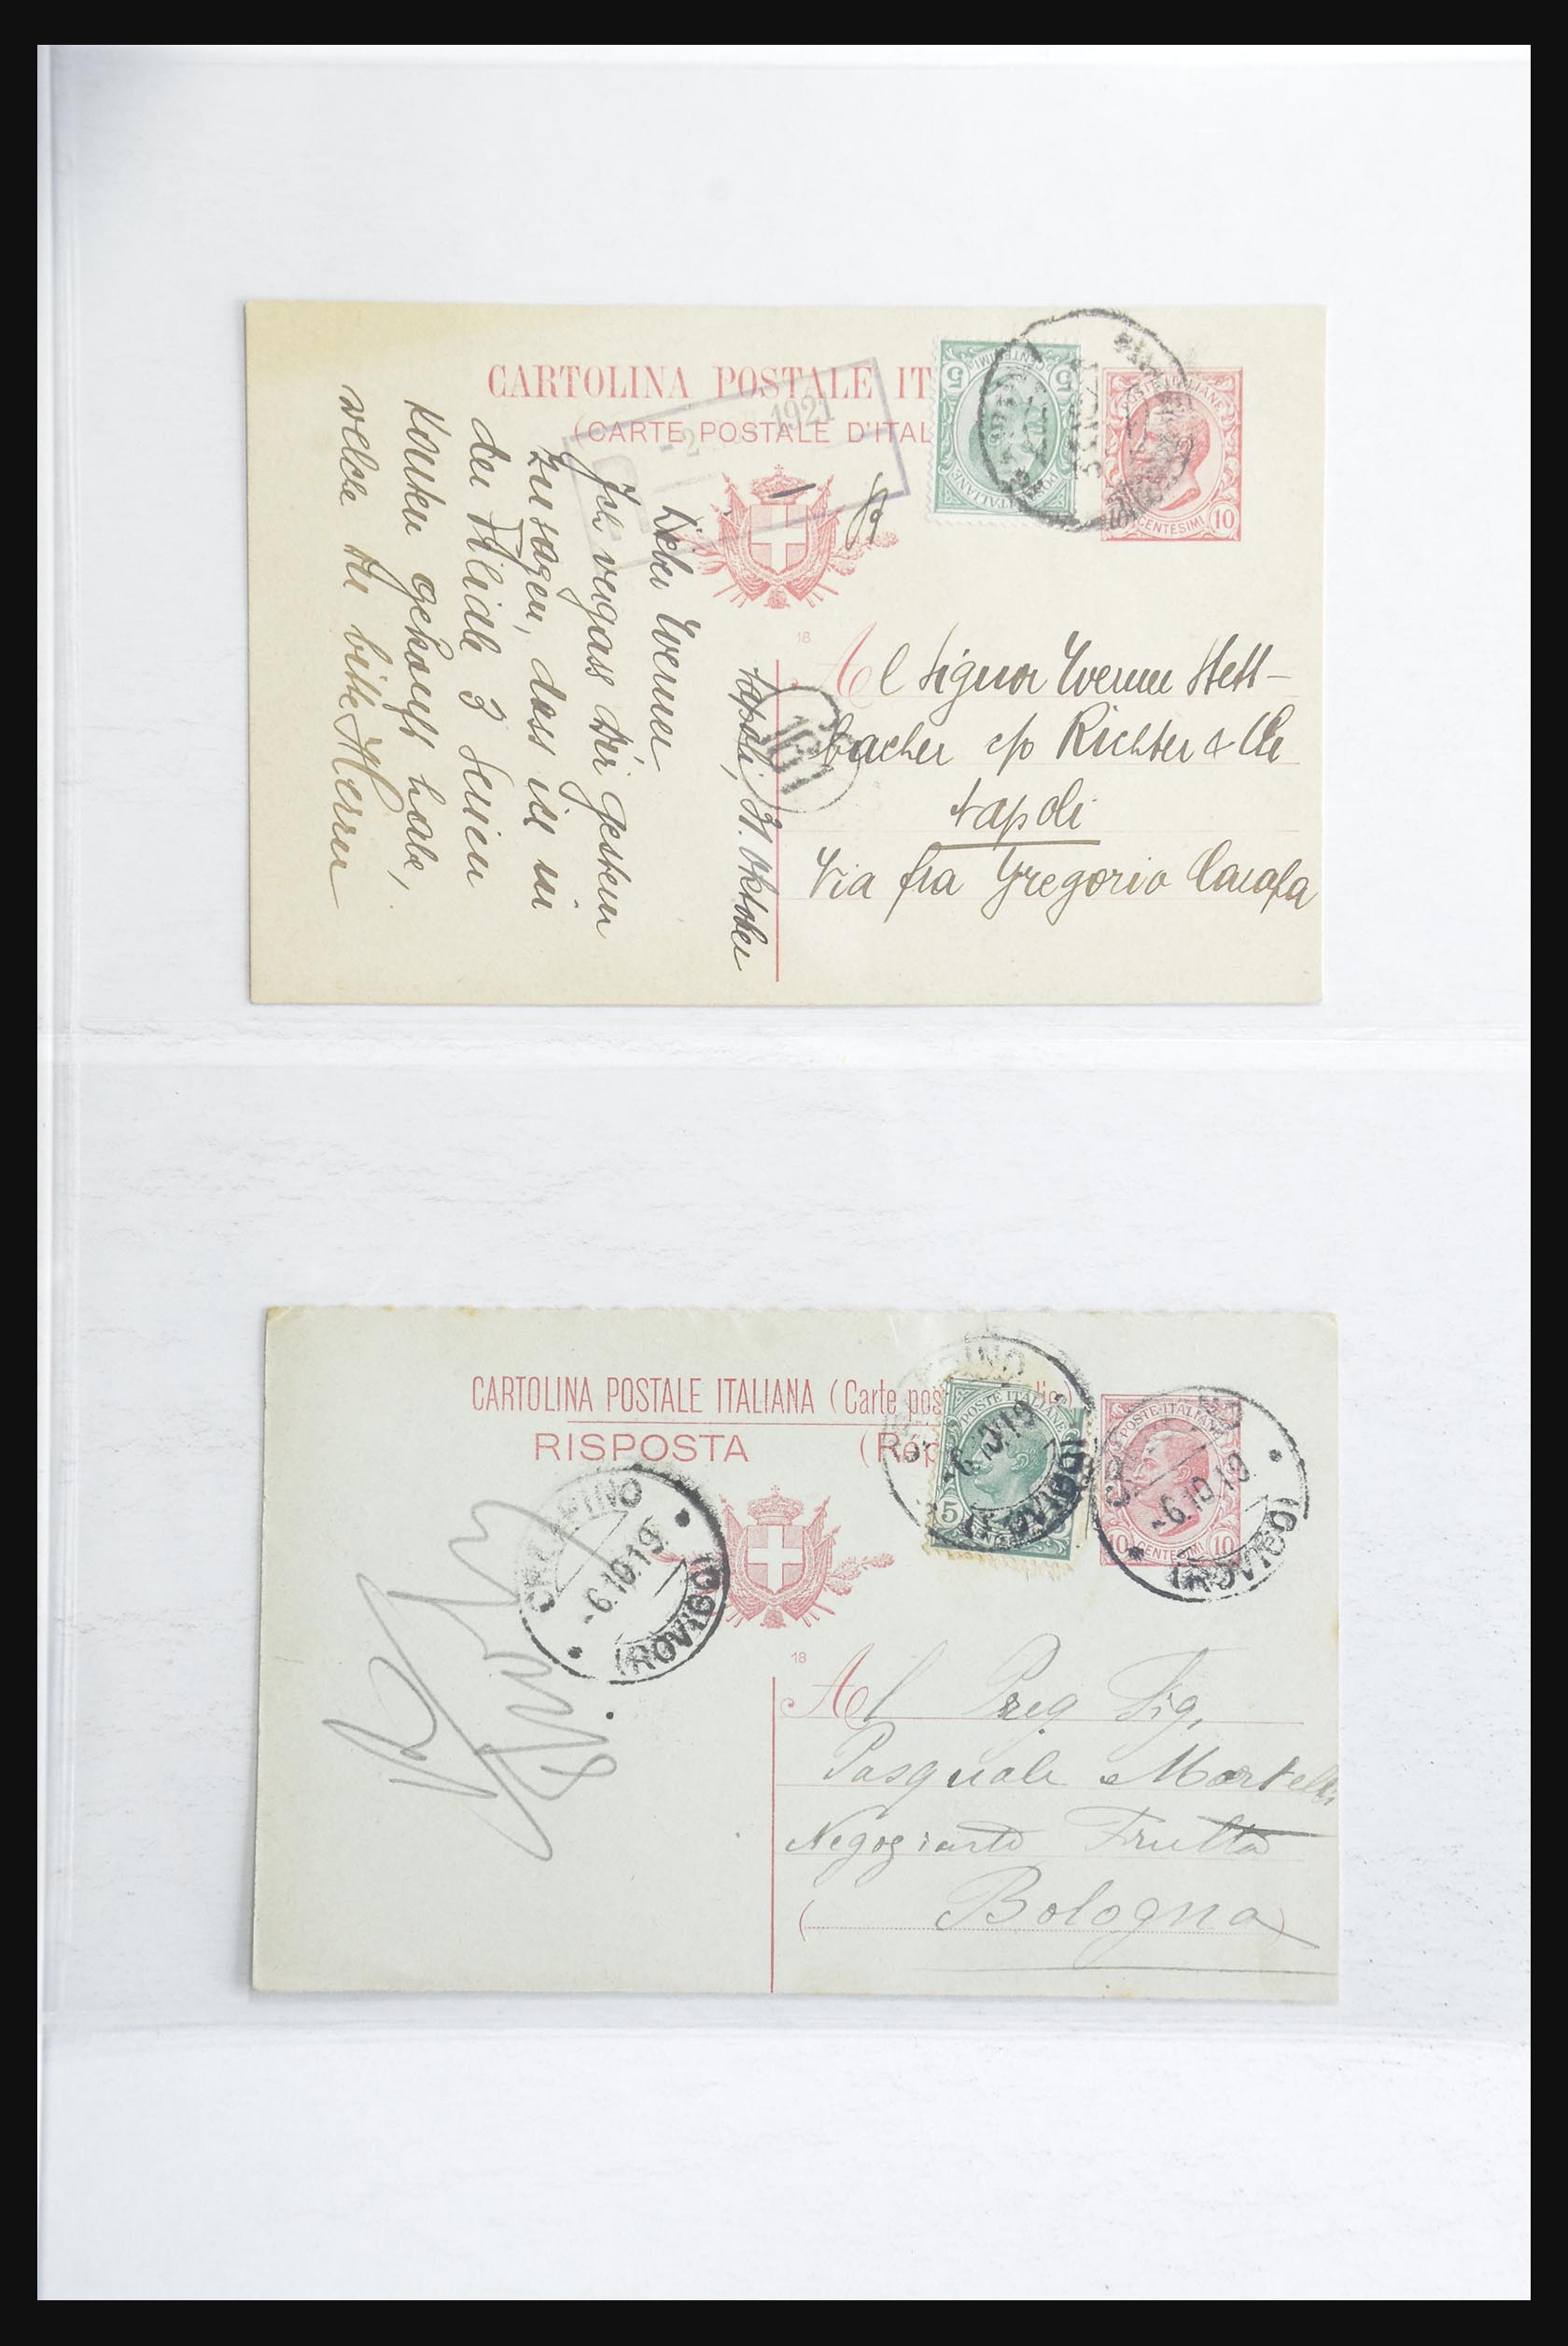 CARTOLINA POSTALE IT
(CARTE POSTALE D'ITAL
-2 1921
5 CENTESIMI 5
POSTE ITALIANE
POSTE ITALIANE
10 CENTESIMI 10
18
Al Signor Werner Stett-
bacher c/o Richter & Co
Napoli
Via fra Gregorio Carafa
Napoli, 31. Oktober
Lieber Werner
Ich vergass Dir gestern
zu sagen, dass ich in
der Filiale 3 Serien
Karten gekauft habe,
welche Du bitte Herrn
CARTOLINA POSTALE ITALIANA (Carte pos
RISPOSTA (Rép
POSTE ITALIANE
5
POSTE ITALIANE
10 CENTESIMI 10
-6.10.19
(ROVIGO)
-6.10.19
(ROVIGO)
-6.10.19
(ROVIGO)
18
Al Preg Sig.
Pasquale Martelli
Negoziante Frutta
(Bologna)